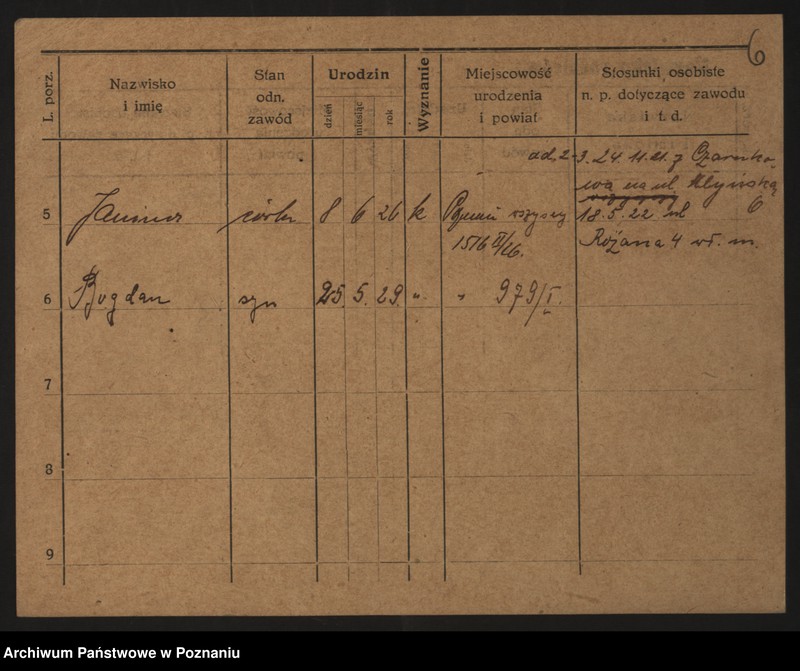 6
L. porz.
Nazwisko
i imię
Stan
odn.
zawód
Urodzin
dzień
miesiąc
rok
Wyznanie
Miejscowość
urodzenia
i powiat
Stosunki osobiste
n. p. dotyczące zawodu
i t. d.
ad. 2-3. 24. 11. 21. z Czarnko-
wa na ul.
6
5 córka 8 6 26 k
1516 II/26.
18. 5. 22. ul
Różana 4 wł. m.
6 Bogdan syn 25. 5. 29. " " 979/I.
7
8
9
Archiwum Państwowe w Poznaniu